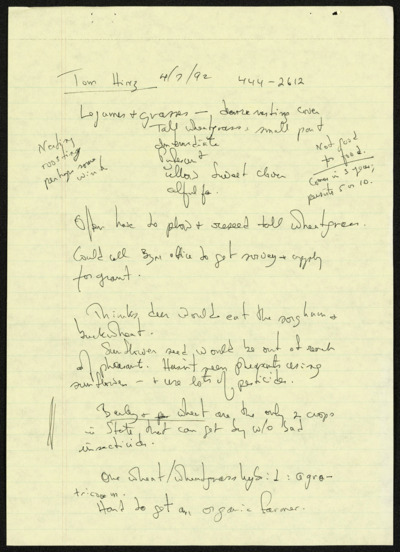 Tom Hinz 4/7/92 444-2612
Legumes + grasses — dense nesting cover
Tall wheatgrass, small part
Intermediate
Pubescent
Yellow Sweet clover
alfalfa.
Nesting
roosting
perhaps some
wind
Not good
for food.
Comes in 3 years,
persists 5 or 10.
Often have to plow + reseed tall wheatgrass.
Could call Bzn office to get survey + apply
for grant.
Thinks deer would eat the sorghum +
buckwheat.
Sunflower seed would be out of reach
of pheasant. Hasn't seen pheasants using
sunflower — + use lots of pesticides.
Barley + wheat are the only 2 crops
in State that can get by w/o bad
insecticides.
One wheat/wheatgrass hybrid: agro-
tricum.
Hard to get an organic farmer.